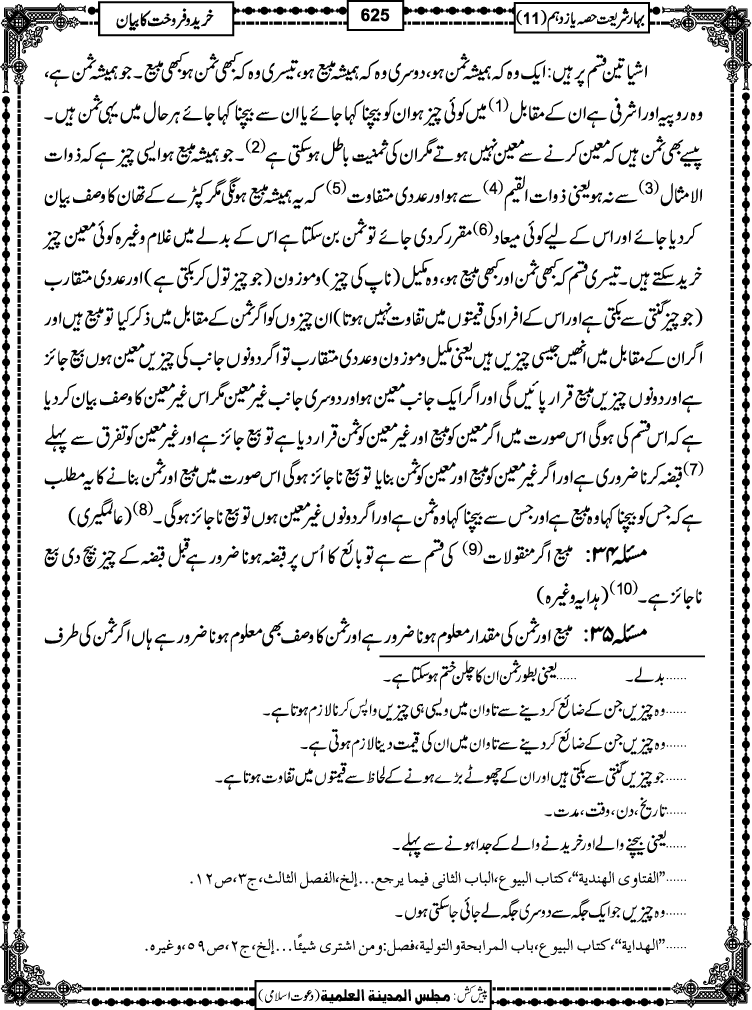 بہارِ شریعت حصہ یازدہم (11)
625
خرید و فروخت کا بیان
اشیا تین قسم پر ہیں: ایک وہ کہ ہمیشہ ثمن ہو، دوسری وہ کہ ہمیشہ مبیع ہو، تیسری وہ کہ کبھی ثمن ہو کبھی مبیع۔ جو ہمیشہ ثمن ہے،
وہ روپیہ اور اشرفی ہے ان کے مقابل (1) میں کوئی چیز ہو ان کو بیچنا کہا جائے یا ان سے بیچنا کہا جائے ہر حال میں یہی ثمن ہیں۔
پیسے بھی ثمن ہیں کہ معین کرنے سے معین نہیں ہوتے مگر ان کی ثمنیت باطل ہوسکتی ہے (2)۔ جو ہمیشہ مبیع ہو ایسی چیز ہے کہ ذوات
الامثال (3) سے نہ ہو یعنی ذوات القیم (4) سے ہو اور عددی متفاوت (5) کہ یہ ہمیشہ مبیع ہونگی مگر کپڑے کے تھان کا وصف بیان
کردیا جائے اور اس کے لیے کوئی میعاد (6) مقرر کردی جائے تو ثمن بن سکتا ہے اس کے بدلے میں غلام وغیرہ کوئی معین چیز
خرید سکتے ہیں۔ تیسری قسم کہ کبھی ثمن اور کبھی مبیع ہو، وہ مکیل (ناپ کی چیز) و موزون (جو چیز تول کر بکتی ہے) اور عددی متقارب
(جو چیز گنتی سے بکتی ہے اور اس کے افراد کی قیمتوں میں تفاوت نہیں ہوتا) ان چیزوں کو اگر ثمن کے مقابل میں ذکر کیا تو مبیع ہیں اور
اگر ان کے مقابل میں انھیں جیسی چیزیں ہیں یعنی مکیل و موزون و عددی متقارب تو اگر دونوں جانب کی چیزیں معین ہوں بیع جائز
ہے اور دونوں چیزیں مبیع قرار پائیں گی اور اگر ایک جانب معین ہو اور دوسری جانب غیر معین مگر اس غیر معین کا وصف بیان کردیا
ہے کہ اس قسم کی ہوگی اس صورت میں اگر معین کو مبیع اور غیر معین کو ثمن قرار دیا ہے تو بیع جائز ہے اور غیر معین کو تفرق سے پہلے
(7) قبضہ کرنا ضروری ہے اور اگر غیر معین کو مبیع اور معین کو ثمن بنایا تو بیع ناجائز ہوگی اس صورت میں مبیع اور ثمن بنانے کا یہ مطلب
ہے کہ جس کو بیچنا کہا وہ مبیع ہے اور جس سے بیچنا کہا وہ ثمن ہے اور اگر دونوں غیر معین ہوں تو بیع ناجائز ہوگی۔ (8) (عالمگیری)
مسئلہ ۳۴: مبیع اگر منقولات (9) کی قسم سے ہے تو بائع کا اُس پر قبضہ ہونا ضرور ہے قبل قبضہ کے چیز بیچ دی بیع
ناجائز ہے۔ (10) (ہدایہ وغیرہ)
مسئلہ ۳۵: مبیع اور ثمن کی مقدار معلوم ہونا ضرور ہے اور ثمن کا وصف بھی معلوم ہونا ضرور ہے ہاں اگر ثمن کی طرف
......بدلے۔ ......یعنی بطور ثمن ان کا چلن ختم ہوسکتا ہے۔
......وہ چیزیں جن کے ضائع کردینے سے تاوان میں ویسی ہی چیزیں واپس کرنا لازم ہوتا ہے۔
......وہ چیزیں جن کے ضائع کردینے سے تاوان میں ان کی قیمت دینا لازم ہوتی ہے۔
......جو چیزیں گنتی سے بکتی ہیں اور ان کے چھوٹے بڑے ہونے کے لحاظ سے قیمتوں میں تفاوت ہوتا ہے۔
......تاریخ، دن، وقت، مدت۔
......یعنی بیچنے والے اور خریدنے والے کے جدا ہونے سے پہلے۔
......”الفتاوی الھندیة“، کتاب البیوع، الباب الثانی فیما یرجع...إلخ، الفصل الثالث، ج۳، ص۱۲.
......وہ چیزیں جو ایک جگہ سے دوسری جگہ لے جائی جاسکتی ہوں۔
......”الھدایة“، کتاب البیوع، باب المرابحة والتولیة، فصل: ومن اشتری شیئًا...إلخ، ج۲، ص۵۹، وغیرہ.
پیش کش: مجلس المدینة العلمیة (دعوت اسلامی)